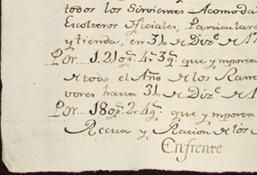 todos los Sirvientes Acomoda
Escolteros Oficiales, Particulare
y tienda, en 31 de Diz.e de 17
Por... 1.210 p.s 4 r.s 3 g.s que ymporta
de todo el Año de los Ran
vores hasta 31 de Diz.e de 1
Por... 180 p.s 2 r.s 4 g.s que y mporta
Recua y Racion de los
Enfrente